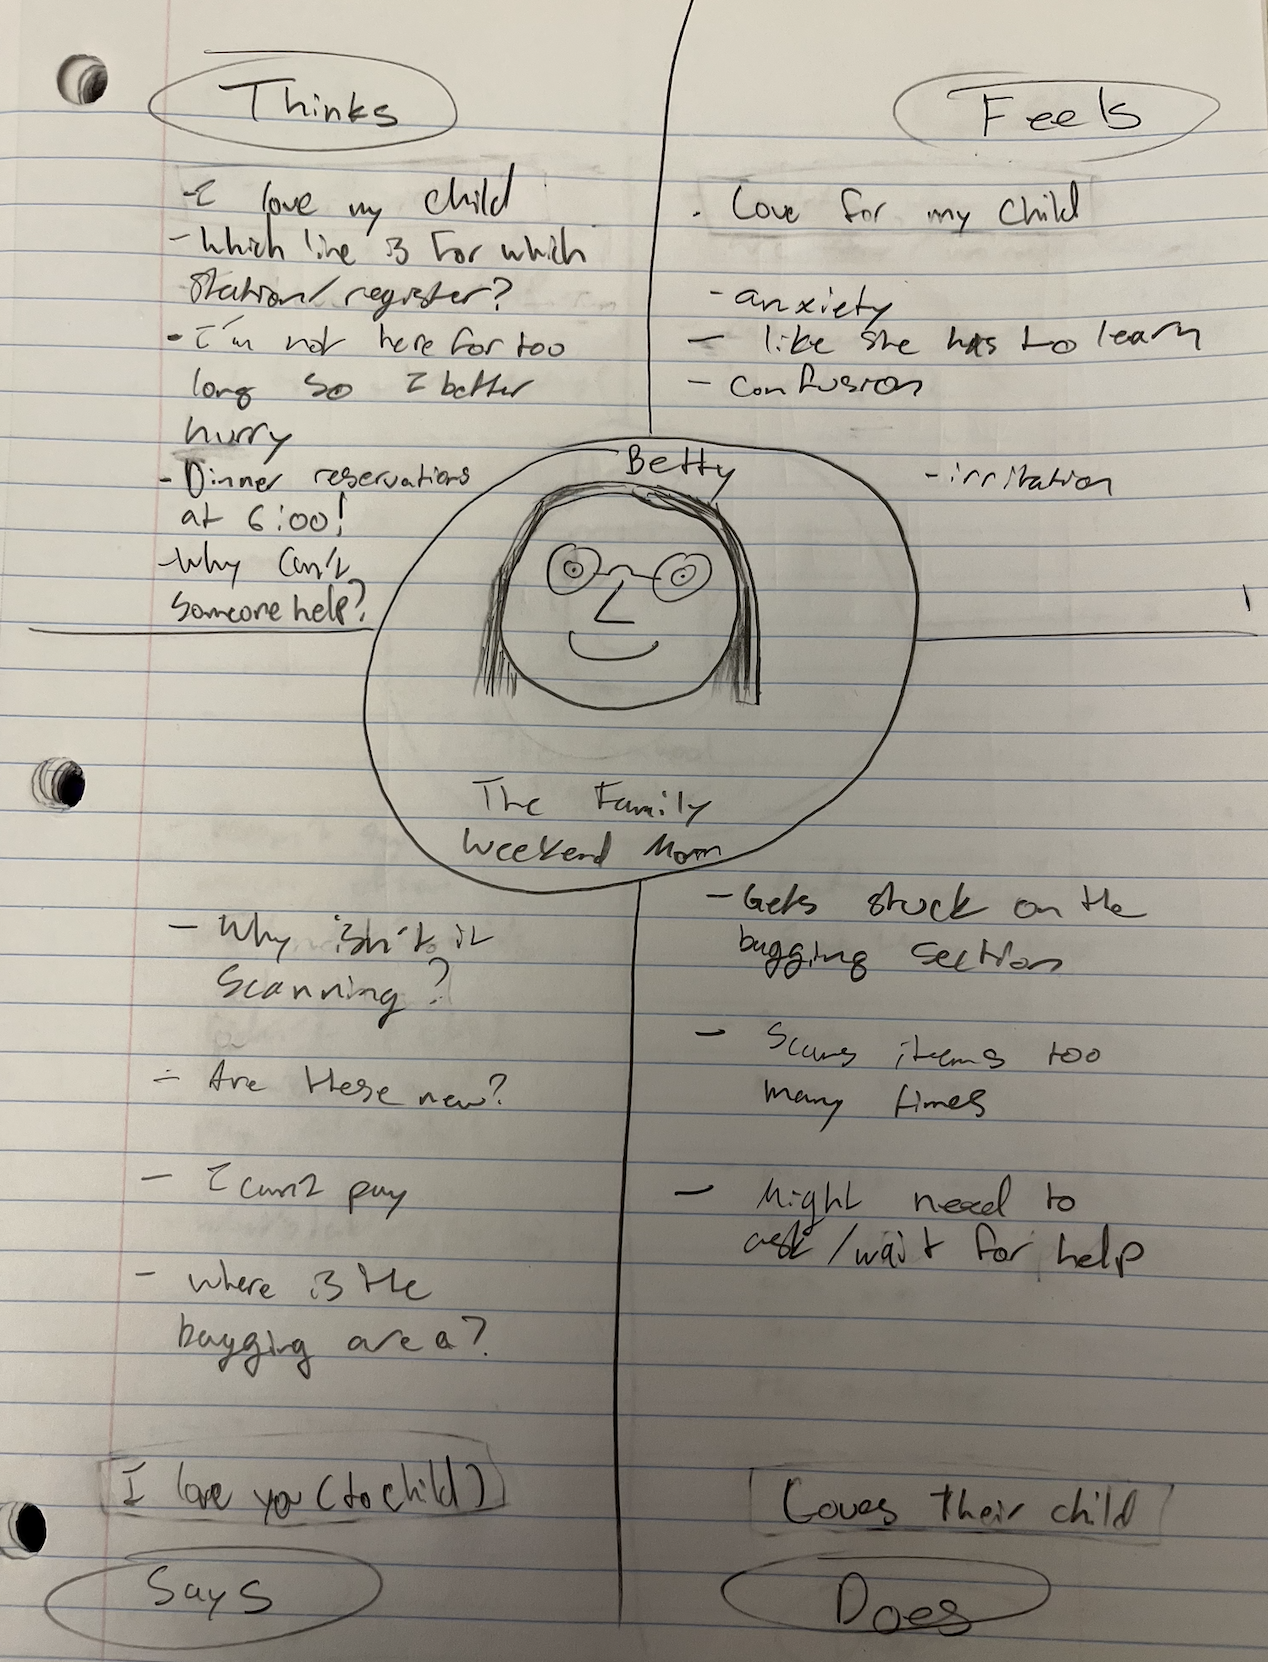 Thinks
- I love my child
- Which line is for which
station/register?
- I'm not here for too
long so I better
hurry
- Dinner reservations
at 6:00!
- Why can't
someone help?
Feels
- Love for my child
- anxiety
- like she has to learn
- confusion
- irritation
Betty
The Family
Weekend Mom
- Why isn't it
scanning?
- Are these new?
- I can't pay
- where is the
bagging area?
I love you (to child)
Says
- Gets stuck on the
bagging section
- Scans items too
many times
- Might need to
ask/wait for help
Loves their child
Does